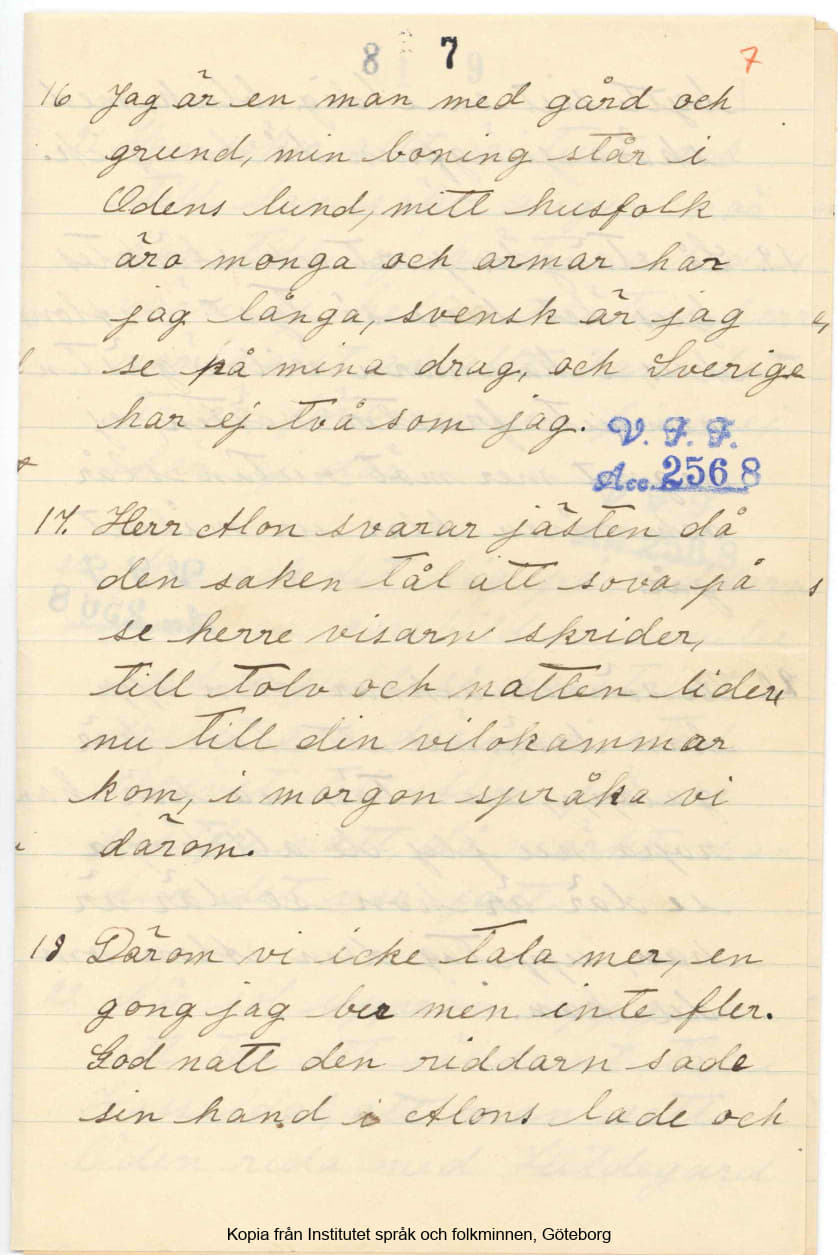 8 7 9 7
16 Jag är en man med gård och
grund, min boning står i
Odens lund, mitt husfolk
äro monga och armar har
jag långa, svensk är jag
se på mina drag, och Sverige
har ej två som jag.
V. F. F.
Acc. 2568
17. Herr Alon svarar jästen då
den saken tål att sova på
se herre visarn skrider,
till tolv och natten lider
nu till din vilokammar
kom, i morgon språka vi
därom.
18 Därom vi icke tala mer, en
gong jag ber men inte fler.
God natt den riddarn sade
sin hand i Alons lade och
Kopia från Institutet språk och folkminnen, Göteborg